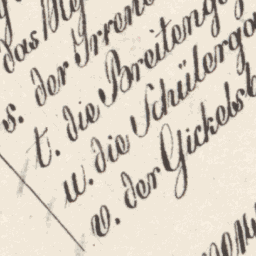 das
s. der Irren
t. die Breiteng
u. die Schülerga
v. der Gickelsb